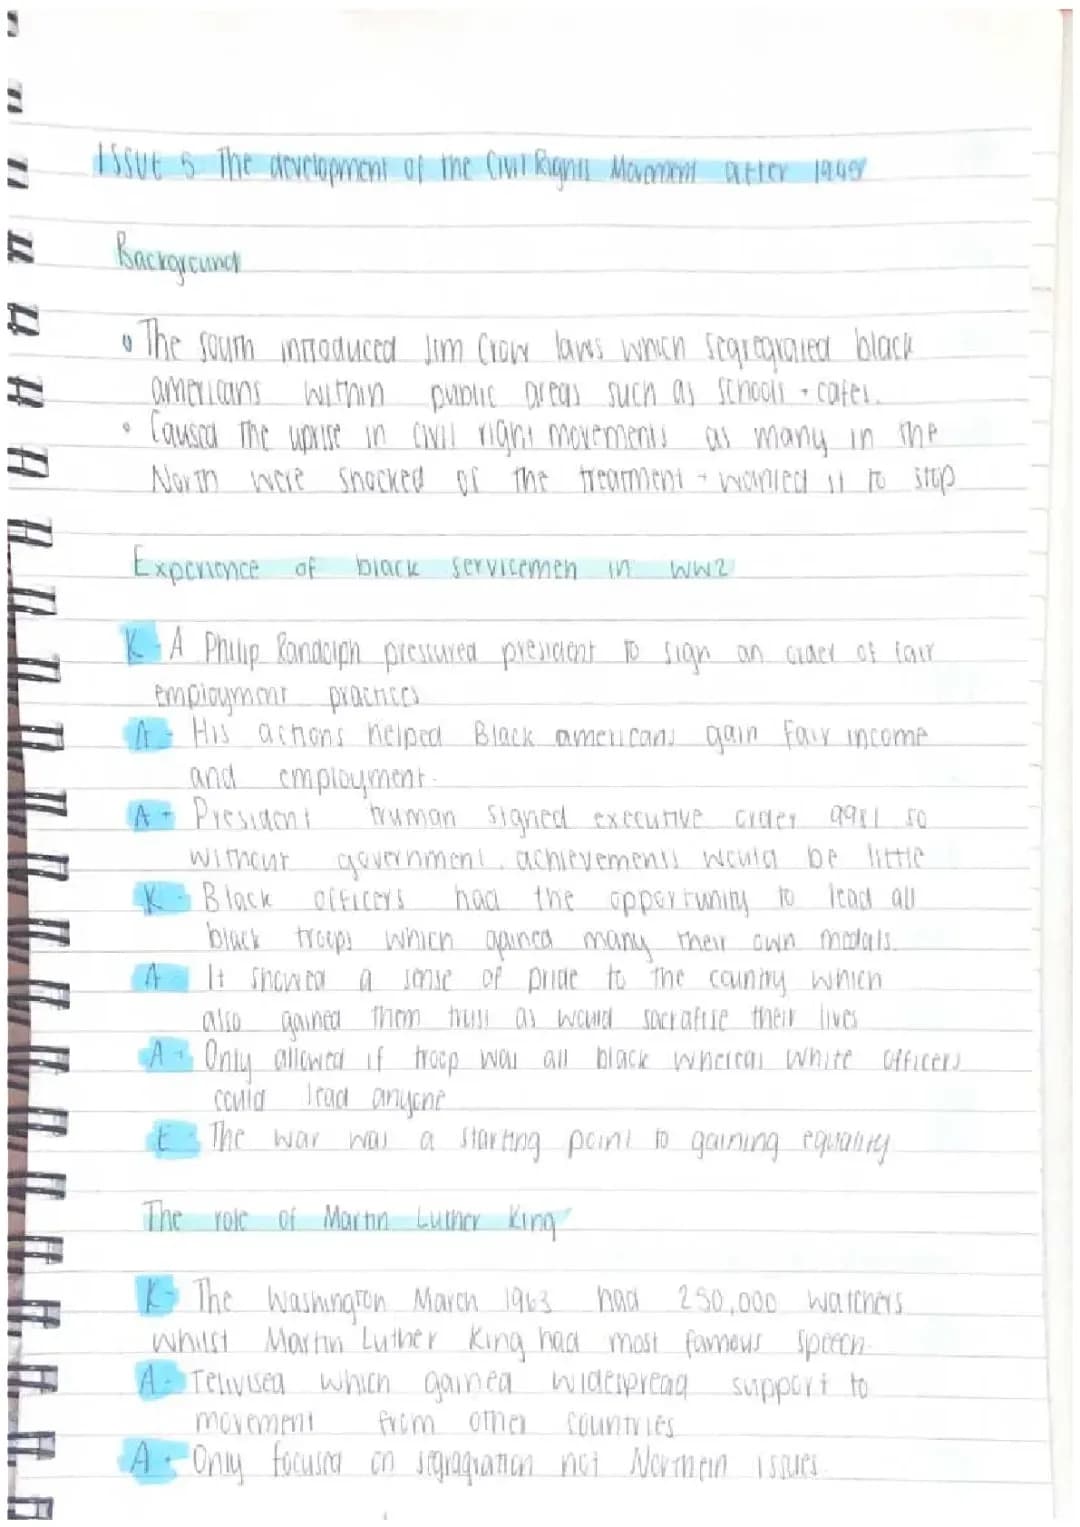 ISSUE 5 The development of the Civil Rights Movement after 1945
Background
• The south introduced Jim Crow laws which segregrated black
americans within public areas such as schools + cafes.
• Caused the uprise in civil right movements as many in the
North were shocked of the treatment + wanted it to stop
Experience of black servicemen in WW2
K - A Philip Randolph pressured president to sign an order of fair
employment practices
A + His actions helped Black americans gain fair income
and employment.
A - President truman signed executive order 9981 so
without government, achievements would be little
K - Black officers had the opportunity to lead all
black troops which gained many their own medals.
A It showed a sense of pride to the country which
also gained them trust as would sacrafise their lives
A - Only allowed if troop was all black whereas white officers
could lead anyone
E - The war was a starting point to gaining equality
The role of Martin Luther King
K - The Washington March 1963 had 250,000 watchers
whilst Martin Luther King had most famous speech.
A - Telivised which gained widespread support to
movement from other countries
A - Only focused on segragration not Northern issues.